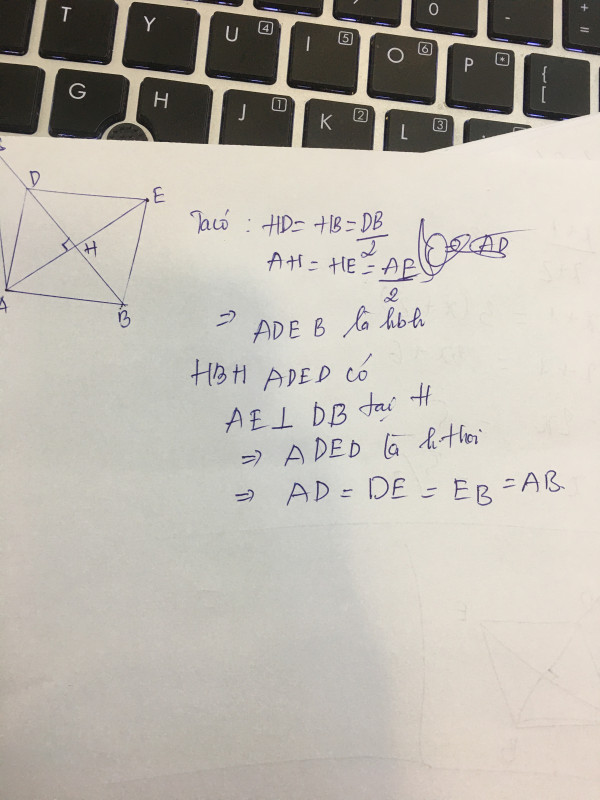 T Y U 4 I 5 O 6 P * 0 - + =
G H J 1 K 2 L 3 { [
D
E
H
A
B
Ta có : HD = HB = DB/2
AH = HE = AE/2
⇒ ADEB là hbh
HBH ADED có
AE ⊥ DB tại H
⇒ ADED là h.thoi
⇒ AD = DE = EB = AB.